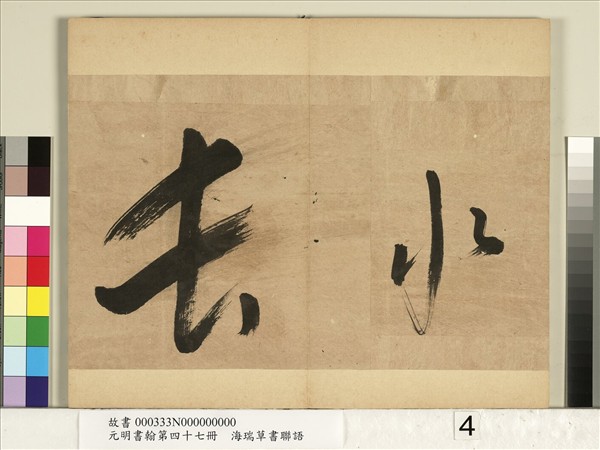 水
去
故書 000333N000000000
元明書翰第四十七冊　海瑞草書聯語
4